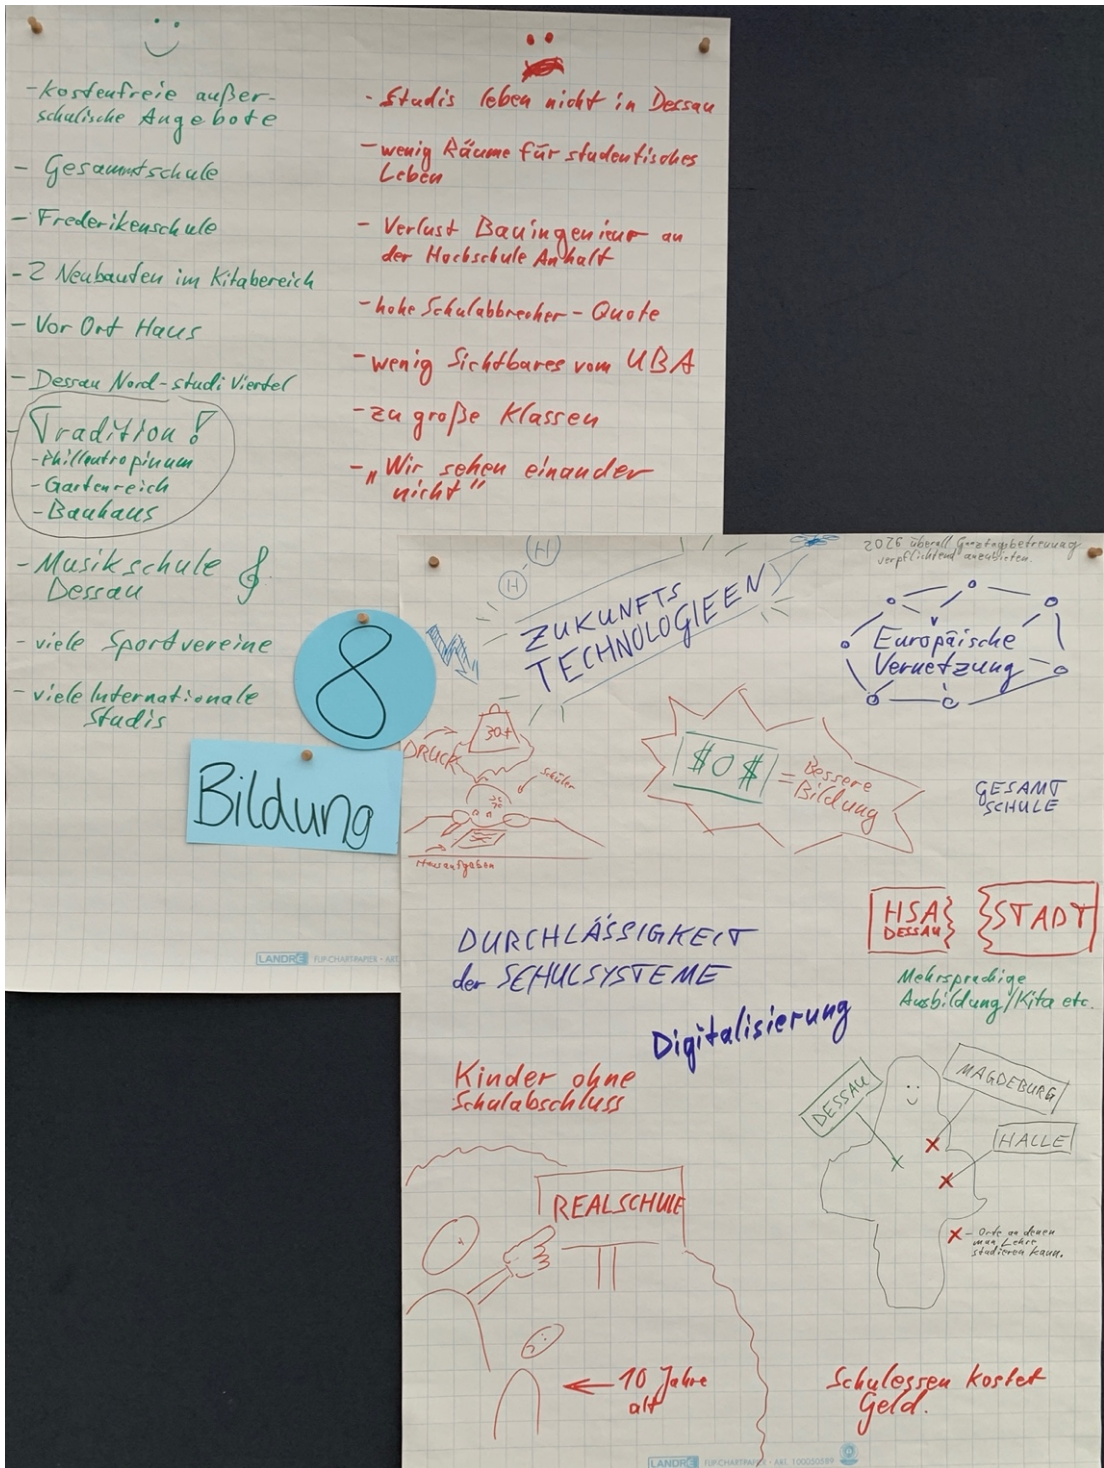 - Kostenfreie außer-
schulische Angebote
- Gesammtschule
- Frederikenschule
- 2 Neubauten im Kitabereich
- Vor Ort Haus
- Dessau Nord - studi Viertel
- Tradition!
- Phillantropinum
- Gartenreich
- Bauhaus
- Musikschule
Dessau
- viele Sportvereine
- viele Internationale
Studis
- Studis leben nicht in Dessau
- wenig Räume für studentisches
Leben
- Verlust Bauingenieur an
der Hochschule Anhalt
- hohe Schulabbrecher - Quote
- wenig Sichtbares vom UBA
- zu große Klassen
- „Wir sehen einander
nicht"
8
Bildung
LANDRÉ FLIPCHARTPAPIER · ART.
H
H
ZUKUNFTS
TECHNOLOGIEEN
2026 überall Ganztagsbetreuung
verpflichtend anzubieten.
Europäische
Vernetzung
DRUCK
30+
Schüler
Hausaufgaben
$0$ = Bessere
Bildung
GESAMT
SCHULE
HSA
DESSAU
STADT
DURCHLÄSSIGKEIT
der SCHULSYSTEME
Mehrsprachige
Ausbildung/Kita etc.
Digitalisierung
Kinder ohne
Schulabschluss
DESSAU
MAGDEBURG
HALLE
X - Orte an denen
man Lehre
studieren kann.
REALSCHULE
10 Jahre
alt
Schulessen kostet
Geld.
LANDRÉ FLIPCHARTPAPIER · ART. 100050589